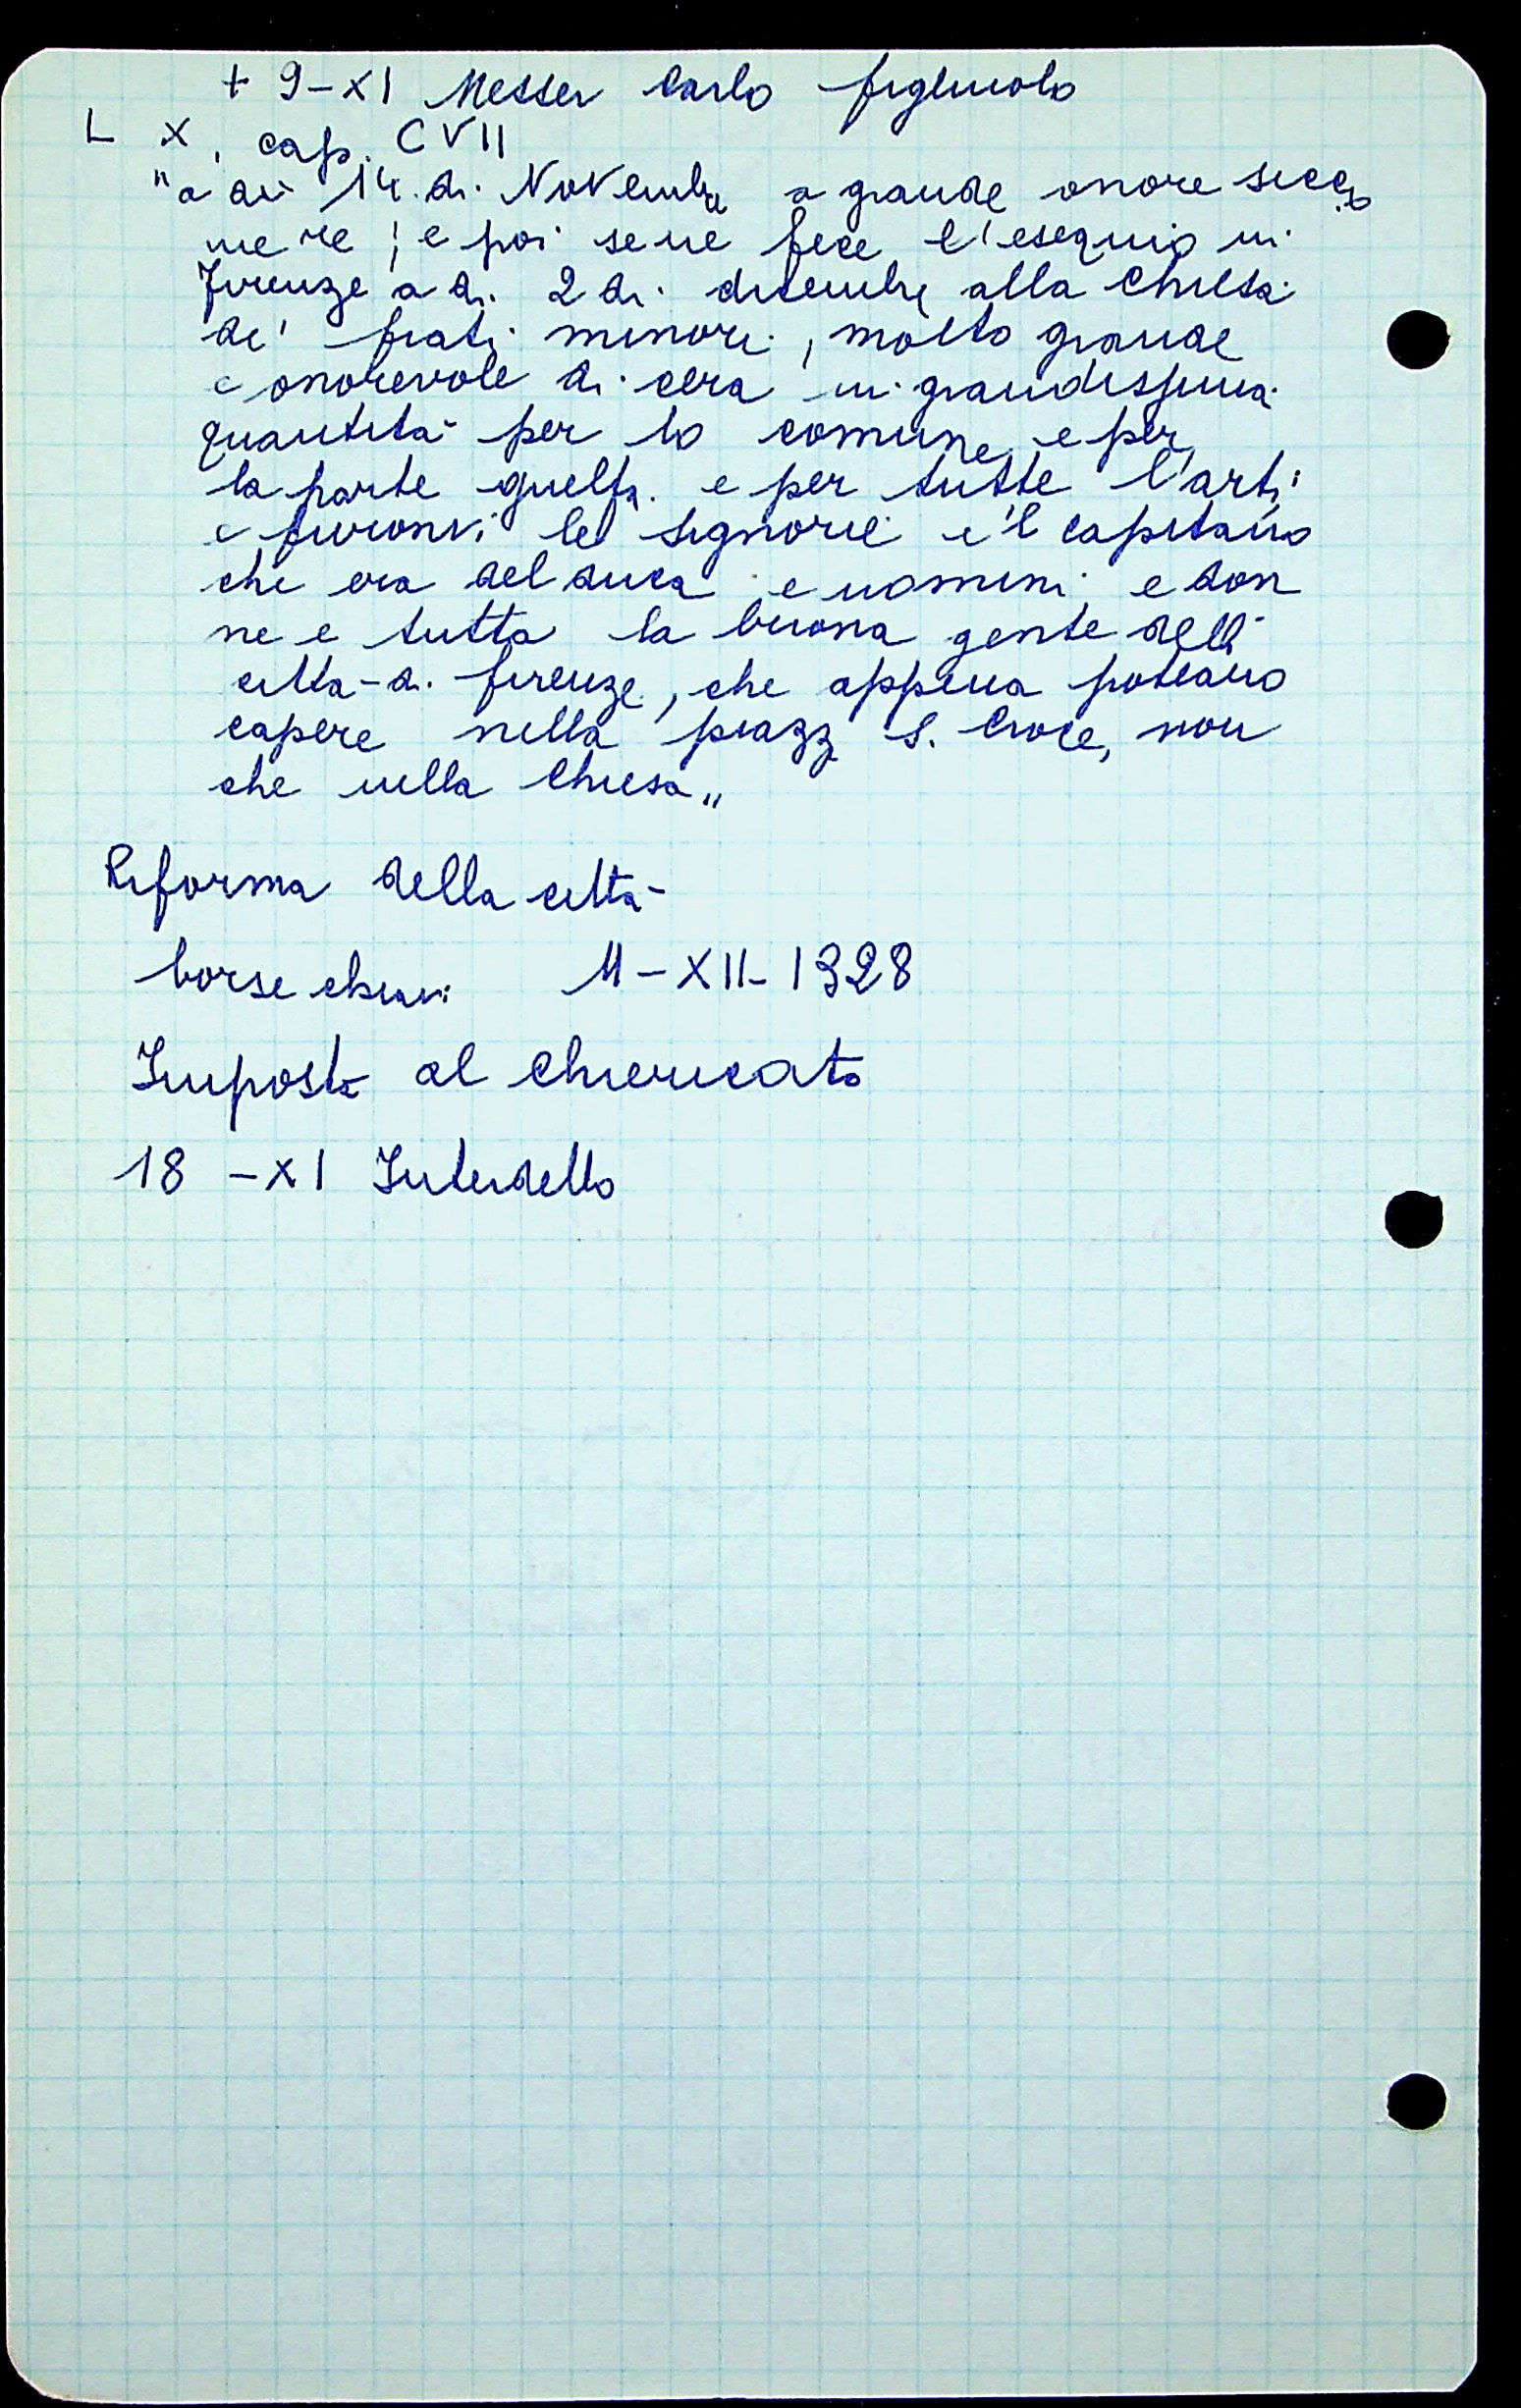 + 9-XI Messer Carlo figliuolo
L X, cap. CVII
"a dì 14 di Novembre a grande onore sicco
me re; e poi se ne fece l'esequio in
Firenze a dì 2 di dicembre alla Chiesa
de' frati minori, molto grande
e onorevole di cera in grandissima
quantità per lo comune e per
la parte guelfa e per tutte l'arti
e furonvi le signorie e 'l capitano
che era del duca e uomini e don
ne e tutta la buona gente della
città di Firenze, che appena poteano
capere nella piazz S. Croce, non
che nella Chiesa"
Riforma della città
borse chiavi 11-XII-1328
Imposta al Chiericato
18 -XI Interdetto